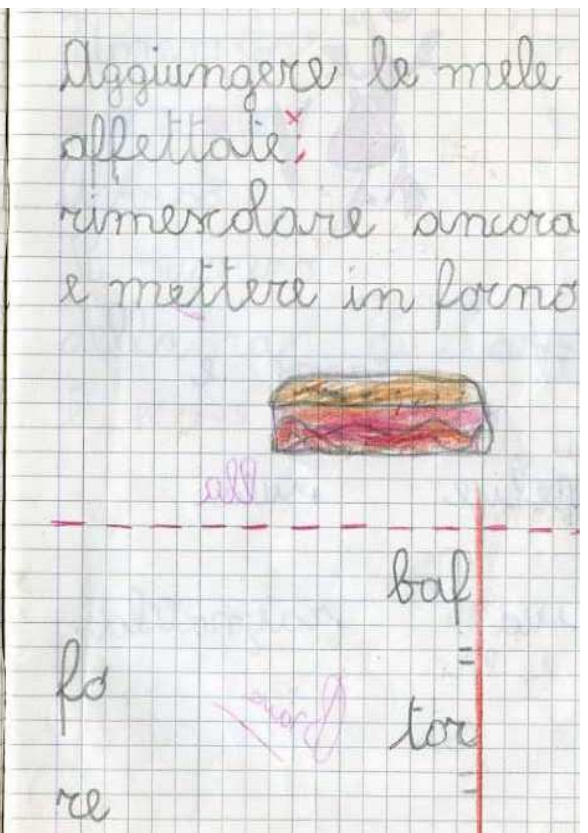 Aggiungere le mele
affettate;
rimescolare ancora
e mettere in forno
baf
=
fo
tor
=
re